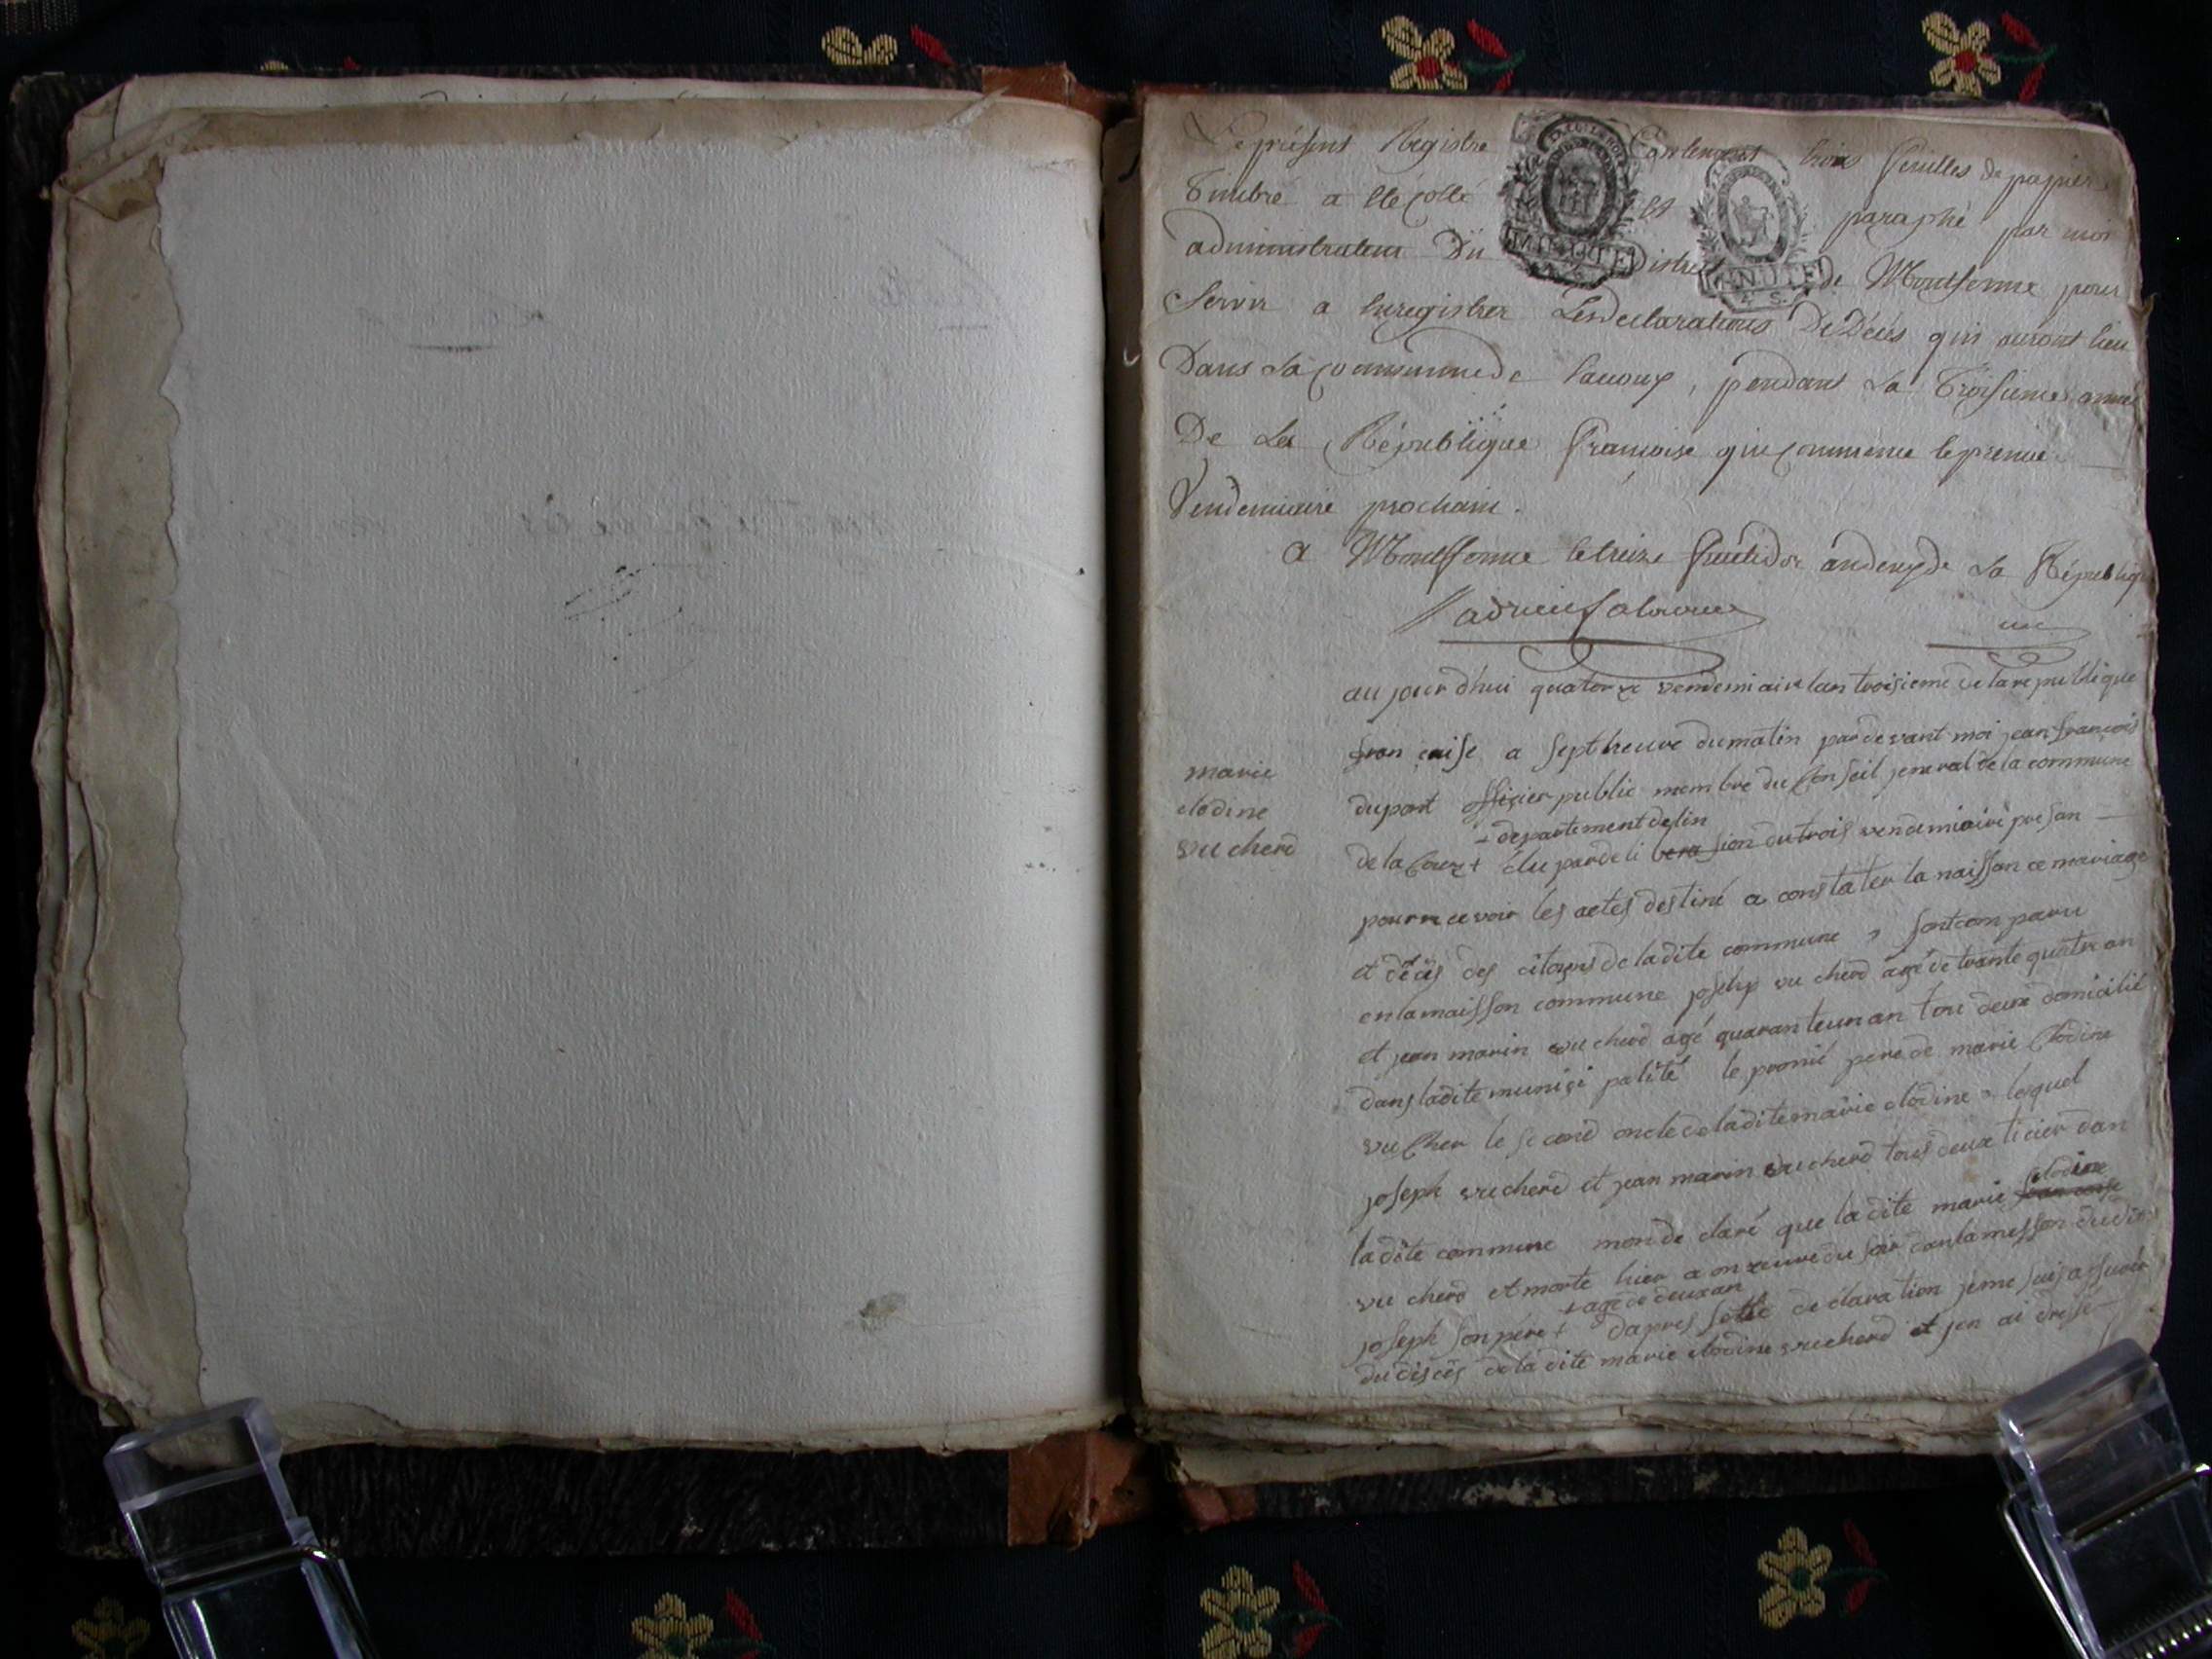 Le présent Registre Contenant trois feuilles de papier
Timbré a été Collé et paraphé par moi
administrateur Du District de Montferme pour
Servir a Enregistrer Les Declarations De Décés qui auront lieu
Dans La Commune de Lacoux, pendant La Troisieme année
De La République françoise qui Commence le premier
Vendemiaire prochain.
a Montferme le treize fructidor an deux de La République
MINUTE
MINUTE
4 S.
au jourdhui quatorze vendemiaire lan troisieme de la republique
fran caise a sept heure du matin pardevant moi jean françois
dupont officier public membre du Conseil jeneral de la commune
+ departement de lin
de la Coux + élu par deli bera sion du trois vendemiaire presan
pour recevoir les actes destiné a constater la naissance mariage
et décés des citoyens de ladite commune, sont com paru
en la maisson commune joseph vucherd agé de trante quatre an
et jean marin vucherd agé quarante un an tou deux domicilié
dans ladite munici palité le premié pere de marie Clodine
vu Cher le second oncle de ladite marie clodine, lesquel
joseph vucherd et jean marin vucherd tous deux ticier dan
ladite commune mon de claré que la dite marie clodine
vu cherd et morte hier a onzeuvre du soir dan la messon dudit
+ agé de deux an
joseph son pere + dapres sette declaration je me suis assurer
du disces de la dite marie clodine vucherd et jen ai dressé
marie
clodine
vucherd